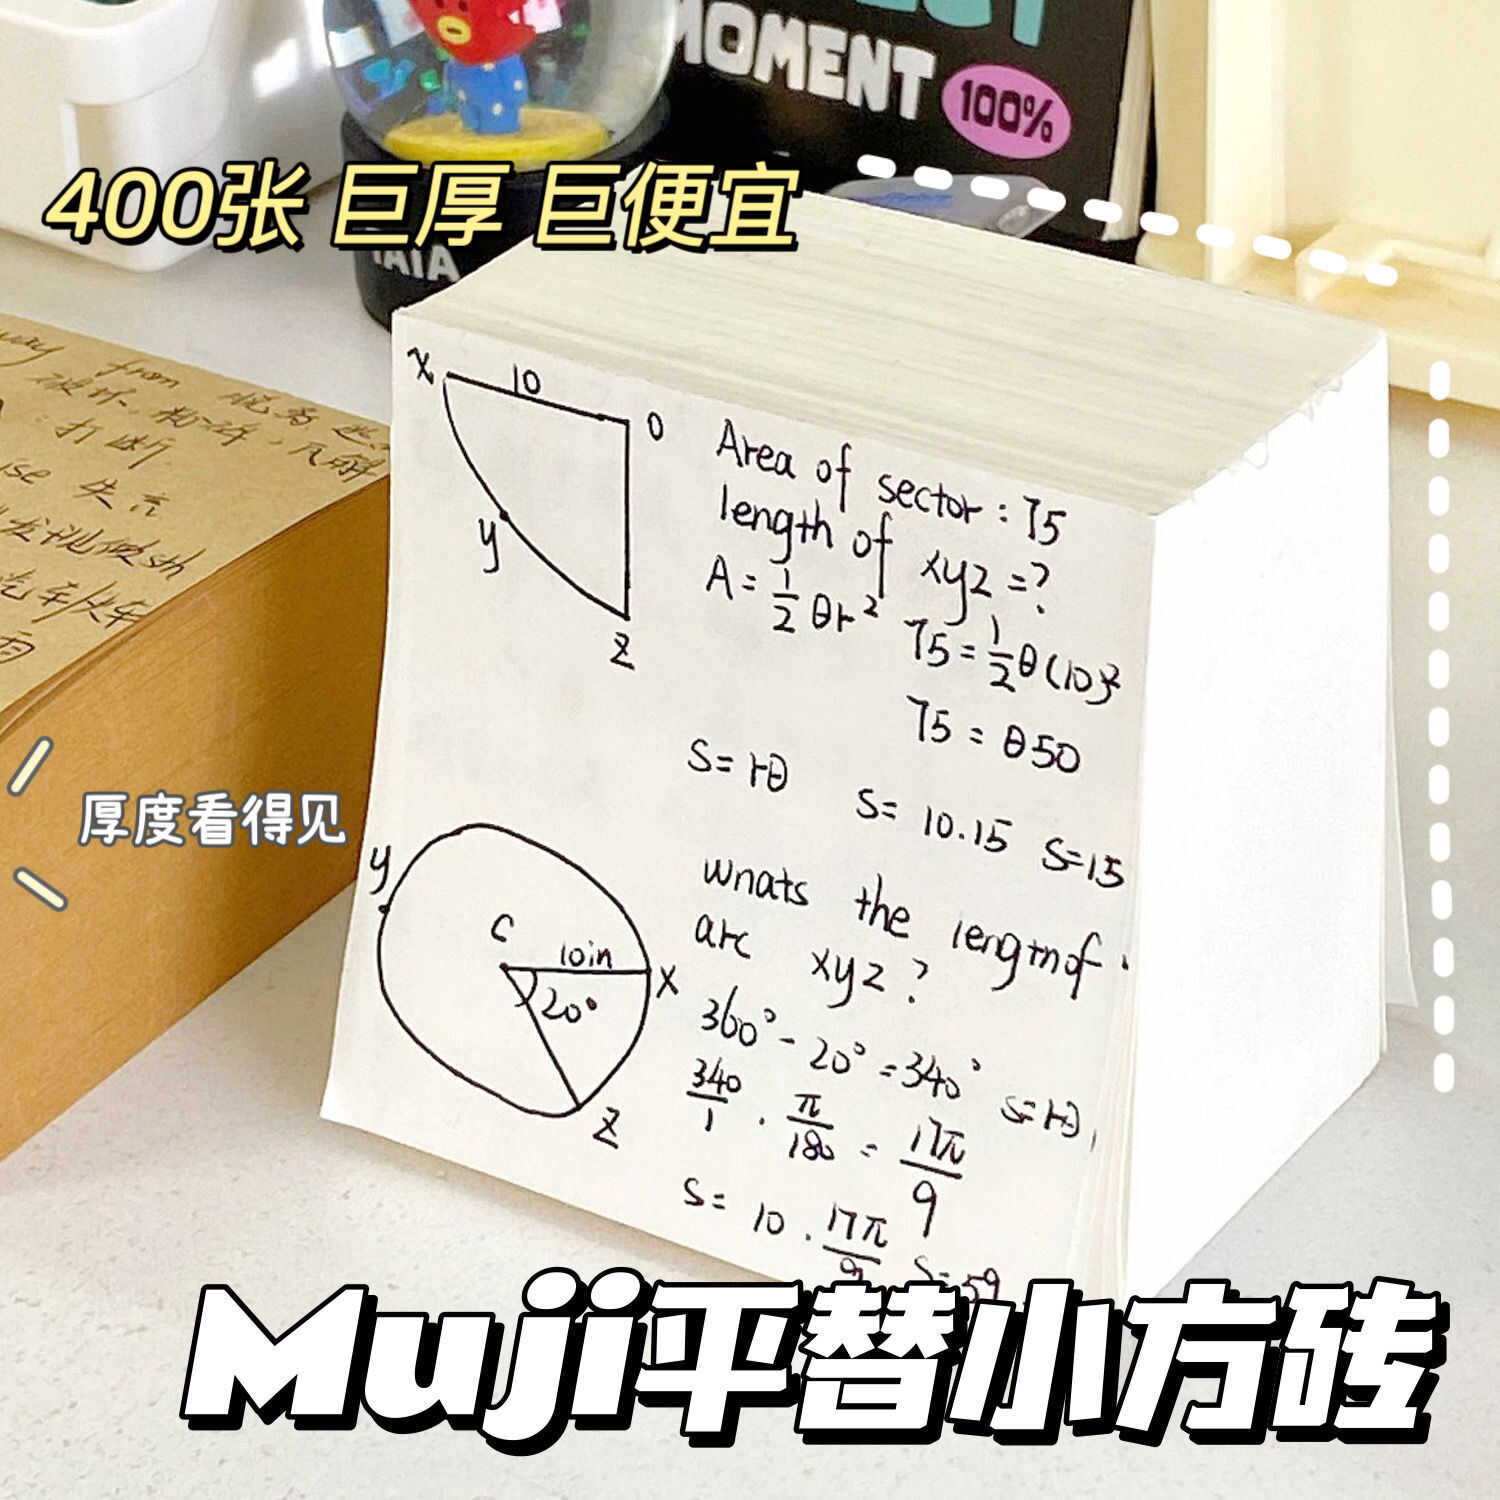 MOMENT
100%
400张 巨厚 巨便宜
TATA
from
打断
失言
厚度看得见
x 10 O
y
z
Area of sector: 75
length of xyz =?
A = 1/2 θr²
75 = 1/2 θ(10)²
75 = θ50
S = rθ S = 10.15 S=15
y
C
10in
x
20°
z
wnats the lengthof
arc xyz?
360° - 20° = 340° S=rθ,
340/1 · π/180 = 17π/9
S = 10 · 17π/9 S=59
Muji平替小方砖